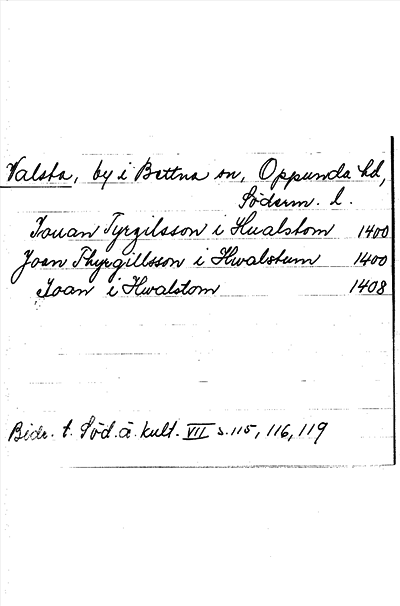 Valsta, by i Bettna sn, Oppunda hd,
Söderm. l.
Iouan Tyrgilsson i Hualstom 1400
Joan Thyrgillsson i Hwalstum 1400
Joan i Hwalstom 1408
Bidr. t. Söd. ä. kult. VII s. 115, 116, 119